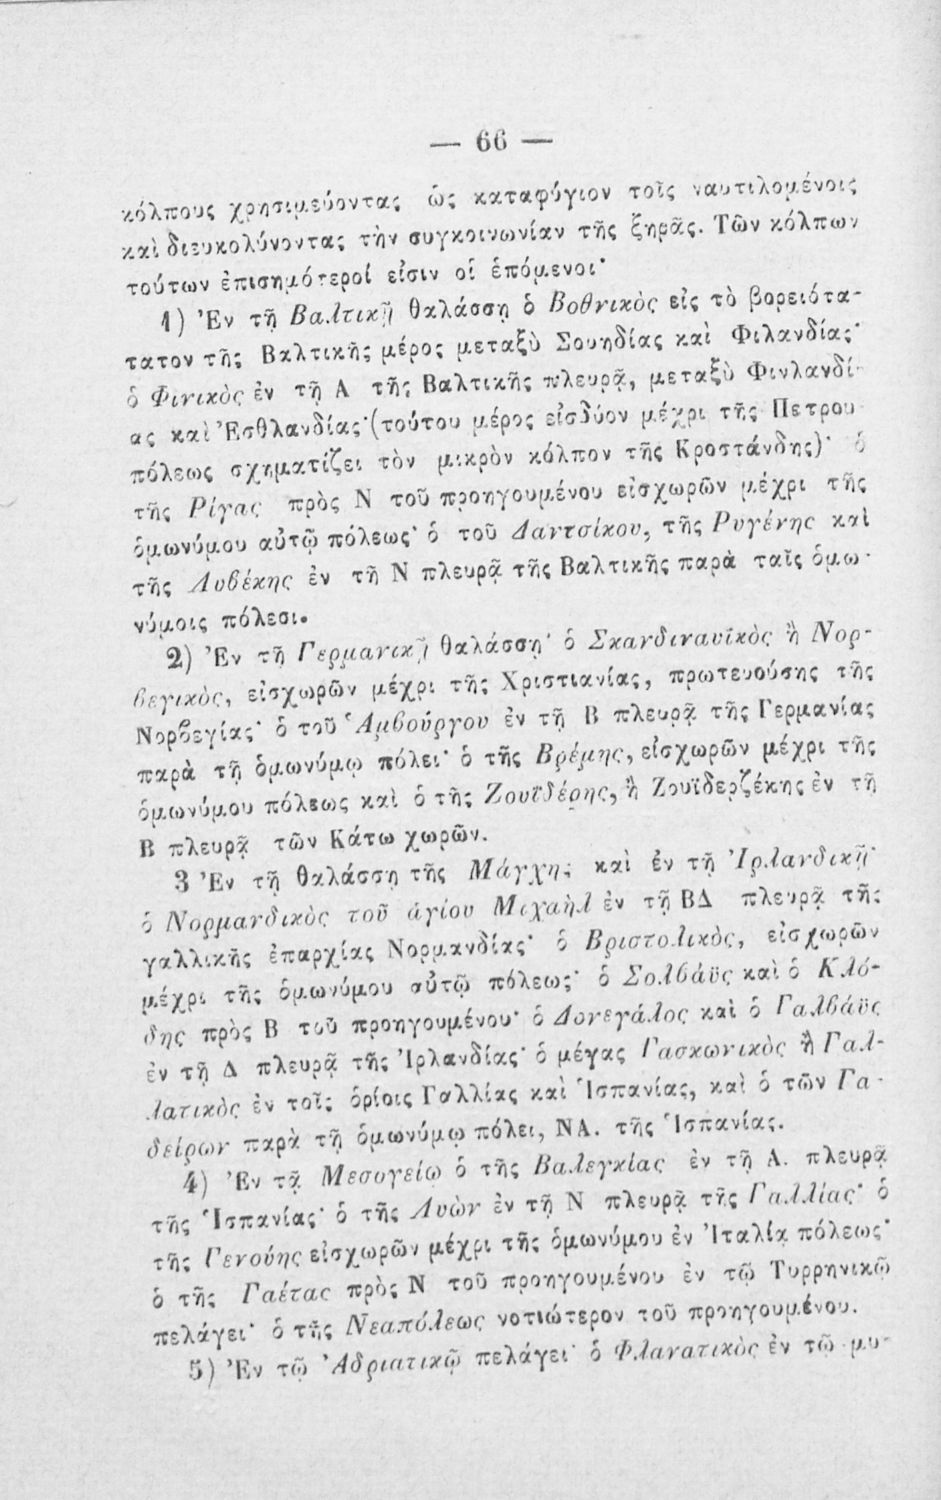 — 66 —
κόλπους χρησιμεύοντας ὡς καταφύγιον τοῖς ναυτιλομένοις
καὶ διευκολύνοντας τὴν συγκοινωνίαν τῆς ξηρᾶς. Τῶν κόλπων
τούτων ἐπισημότεροί εἰσιν οἱ ἑπόμενοι·
1) Ἐν τῇ Βαλτικῇ θαλάσσῃ ὁ Βοθνικὸς εἰς τὸ βορειότα-
τατον τῆς Βαλτικῆς μέρος μεταξὺ Σουηδίας καὶ Φιλανδίας·
ὁ Φινικὸς ἐν τῇ Α τῆς Βαλτικῆς πλευρᾷ, μεταξὺ Φινλανδί-
ας καὶ Ἐσθλανδίας·(τούτου μέρος εἰσδύον μέχρι τῆς Πετρου
πόλεως σχηματίζει τὸν μικρὸν κόλπον τῆς Κροστάνδης)· ὁ
τῆς Ρίγας πρὸς Ν τοῦ προηγουμένου εἰσχωρῶν μέχρι τῆς
ὁμωνύμου αὐτῷ πόλεως· ὁ τοῦ Δαντσίκου, τῆς Ρυγένης καὶ
τῆς Λυβέκης ἐν τῇ Ν πλευρᾷ τῆς Βαλτικῆς παρὰ ταῖς ὁμω-
νύμοις πόλεσι.
2) Ἐν τῇ Γερμανικῇ θαλάσσῃ· ὁ Σκανδιναυῐκὸς ἢ Νορ-
βεγικὸς, εἰσχωρῶν μέχρι τῆς Χριστιανίας, πρωτευούσης τῆς
Νορβεγίας· ὁ τοῦ Ἁμβούργου ἐν τῇ Β πλευρᾷ τῆς Γερμανίας
παρὰ τῇ ὁμωνύμῳ πόλει· ὁ τῆς Βρέμης, εἰσχωρῶν μέχρι τῆς
ὁμωνύμου πόλεως καὶ ὁ τῆς Ζουϊδέρης, ἢ Ζουϊδερζέκης ἐν τῇ
Β πλευρᾷ τῶν Κάτω χωρῶν.
3 Ἐν τῇ θαλάσσῃ τῆς Μάγχης καὶ ἐν τῇ Ἰρλανδικῇ·
ὁ Νορμανδικὸς τοῦ ἁγίου Μιχαὴλ ἐν τῇ ΒΔ πλευρᾷ τῆς
γαλλικῆς ἐπαρχίας Νορμανδίας· ὁ Βριστολικὸς, εἰσχωρῶν
μέχρι τῆς ὁμωνύμου αὐτῷ πόλεως· ὁ Σολβάϋς καὶ ὁ Κλό-
δης πρὸς Β τοῦ προηγουμένου· ὁ Δονεγάλος καὶ ὁ Γαλβάϋς
ἐν τῇ Δ πλευρᾷ τῆς Ἰρλανδίας· ὁ μέγας Γασκωνικὸς ἢ Γαλ-
λατικὸς ἐν τοῖς ὁρίοις Γαλλίας καὶ Ἱσπανίας, καὶ ὁ τῶν Γα-
δείρων παρὰ τῇ ὁμωνύμῳ πόλει, ΝΑ. τῆς Ἱσπανίας.
4) Ἐν τᾷ Μεσογείῳ ὁ τῆς Βαλεγκίας ἐν τῇ Α. πλευρᾷ
τῆς Ἱσπανίας· ὁ τῆς Λυὼν ἐν τῇ Ν πλευρᾷ τῆς Γαλλίας· ὁ
τῆς Γενούης εἰσχωρῶν μέχρι τῆς ὁμωνύμου ἐν Ἰταλίᾳ πόλεως·
ὁ τῆς Γαέτας πρὸς Ν τοῦ προηγουμένου ἐν τῷ Τυρρηνικῷ
πελάγει· ὁ τῆς Νεαπόλεως νοτιώτερον τοῦ προηγουμένου.
5) Ἐν τῷ Ἀδριατικῷ πελάγει· ὁ Φλανατικὸς ἐν τῷ μυ-